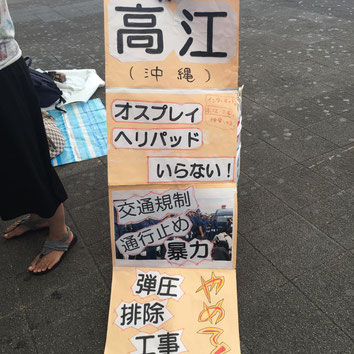 高江
(沖縄)
オスプレイ
ヘリパッド
いらない!
交通規制
通行止め
暴力
弾圧
排除
工事
やめて!